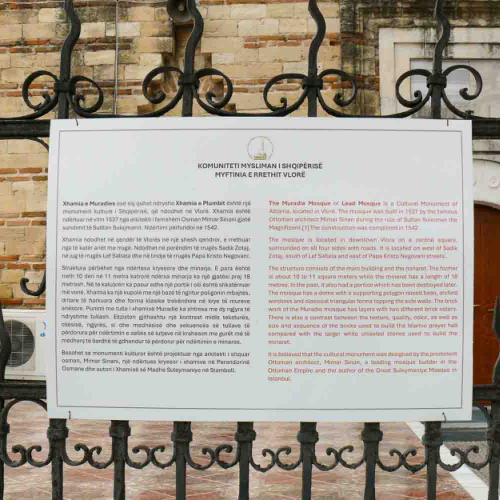 KOMUNITETI MYSLIMAN I SHQIPËRISË
MYFTINIA E RRETHIT VLORË
Xhamia e Muradies ose siç quhet ndryshe Xhamia e Plumbit është një
monument kulture i Shqipërisë, që ndodhet në Vlorë. Xhamia është
ndërtuar në vitin 1537 nga arkitekti i famshëm Osman Mimar Sinani gjatë
sundimit të Sultan Sulejmanit. Ndërtimi përfundoi në 1542.
Xhamia ndodhet në qendër të Vlorës në një shesh qendror, e rrethuar
nga të katër anët me rrugë. Ndodhet në perëndim të rrugës Sadik Zotaj,
në jug të rrugës Lef Sallata dhe në lindje të rrugës Papa Kristo Negovani.
Struktura përbëhet nga ndërtesa kryesore dhe minarja. E para është
rreth 10 deri në 11 metra katrorë ndërsa minarja ka një gjatësi prej 18
metrash. Në të kaluarën ka pasur edhe një portik i cili është shkatërruar
më vonë. Xhamia ka një kupolë me një bazë të ngritur poligonin mbajtës,
dritare të harkuara dhe forma klasike trekëndore në krye të mureve
anësore. Punimi me tulla i xhamisë Muradie ka shtresa me dy ngjyra të
ndryshme tullash. Ekziston gjithashtu një kontrast midis teksturës,
cilësisë, ngjyrës, si dhe madhësisë dhe sekuencës së tullave të
përdorura për ndërtimin e sallës së lutjeve në krahasim me gurët më të
mëdhenj të bardhë të gdhendur të përdorur për ndërtimin e minares.
Besohet se monumenti kulturor është projektuar nga arkitekti i shquar
osman, Mimar Sinani, një ndërtues kryesor i xhamive në Perandorinë
Osmane dhe autori i Xhamisë së Madhe Suleymaniye në Stamboll.
The Muradie Mosque or Lead Mosque is a Cultural Monument of
Albania, located in Vlorë. The mosque was built in 1537 by the famous
Ottoman architect Mimar Sinan during the rule of Sultan Suleiman the
Magnificent.[1] The construction was completed in 1542.
The mosque is located in downtown Vlora on a central square,
surrounded on all four sides with roads. It is located on west of Sadik
Zotaj, south of Lef Sallata and east of Papa Kristo Negovani streets.
The structure consists of the main building and the minaret. The former
is about 10 to 11 square meters while the minaret has a length of 18
metres. In the past, it also had a portico which has been destroyed later.
The mosque has a dome with a supporting polygon raised base, arched
windows and classical triangular forms topping the side walls. The brick
work of the Muradie mosque has layers with two different brick colors.
There is also a contrast between the texture, quality, color, as well as
size and sequence of the bricks used to build the Islamic prayer hall
compared with the larger white chiseled stones used to build the
minaret.
It is believed that the cultural monument was designed by the prominent
Ottoman architect, Mimar Sinan, a leading mosque builder in the
Ottoman Empire and the author of the Great Suleymaniye Mosque in
Istanbul.